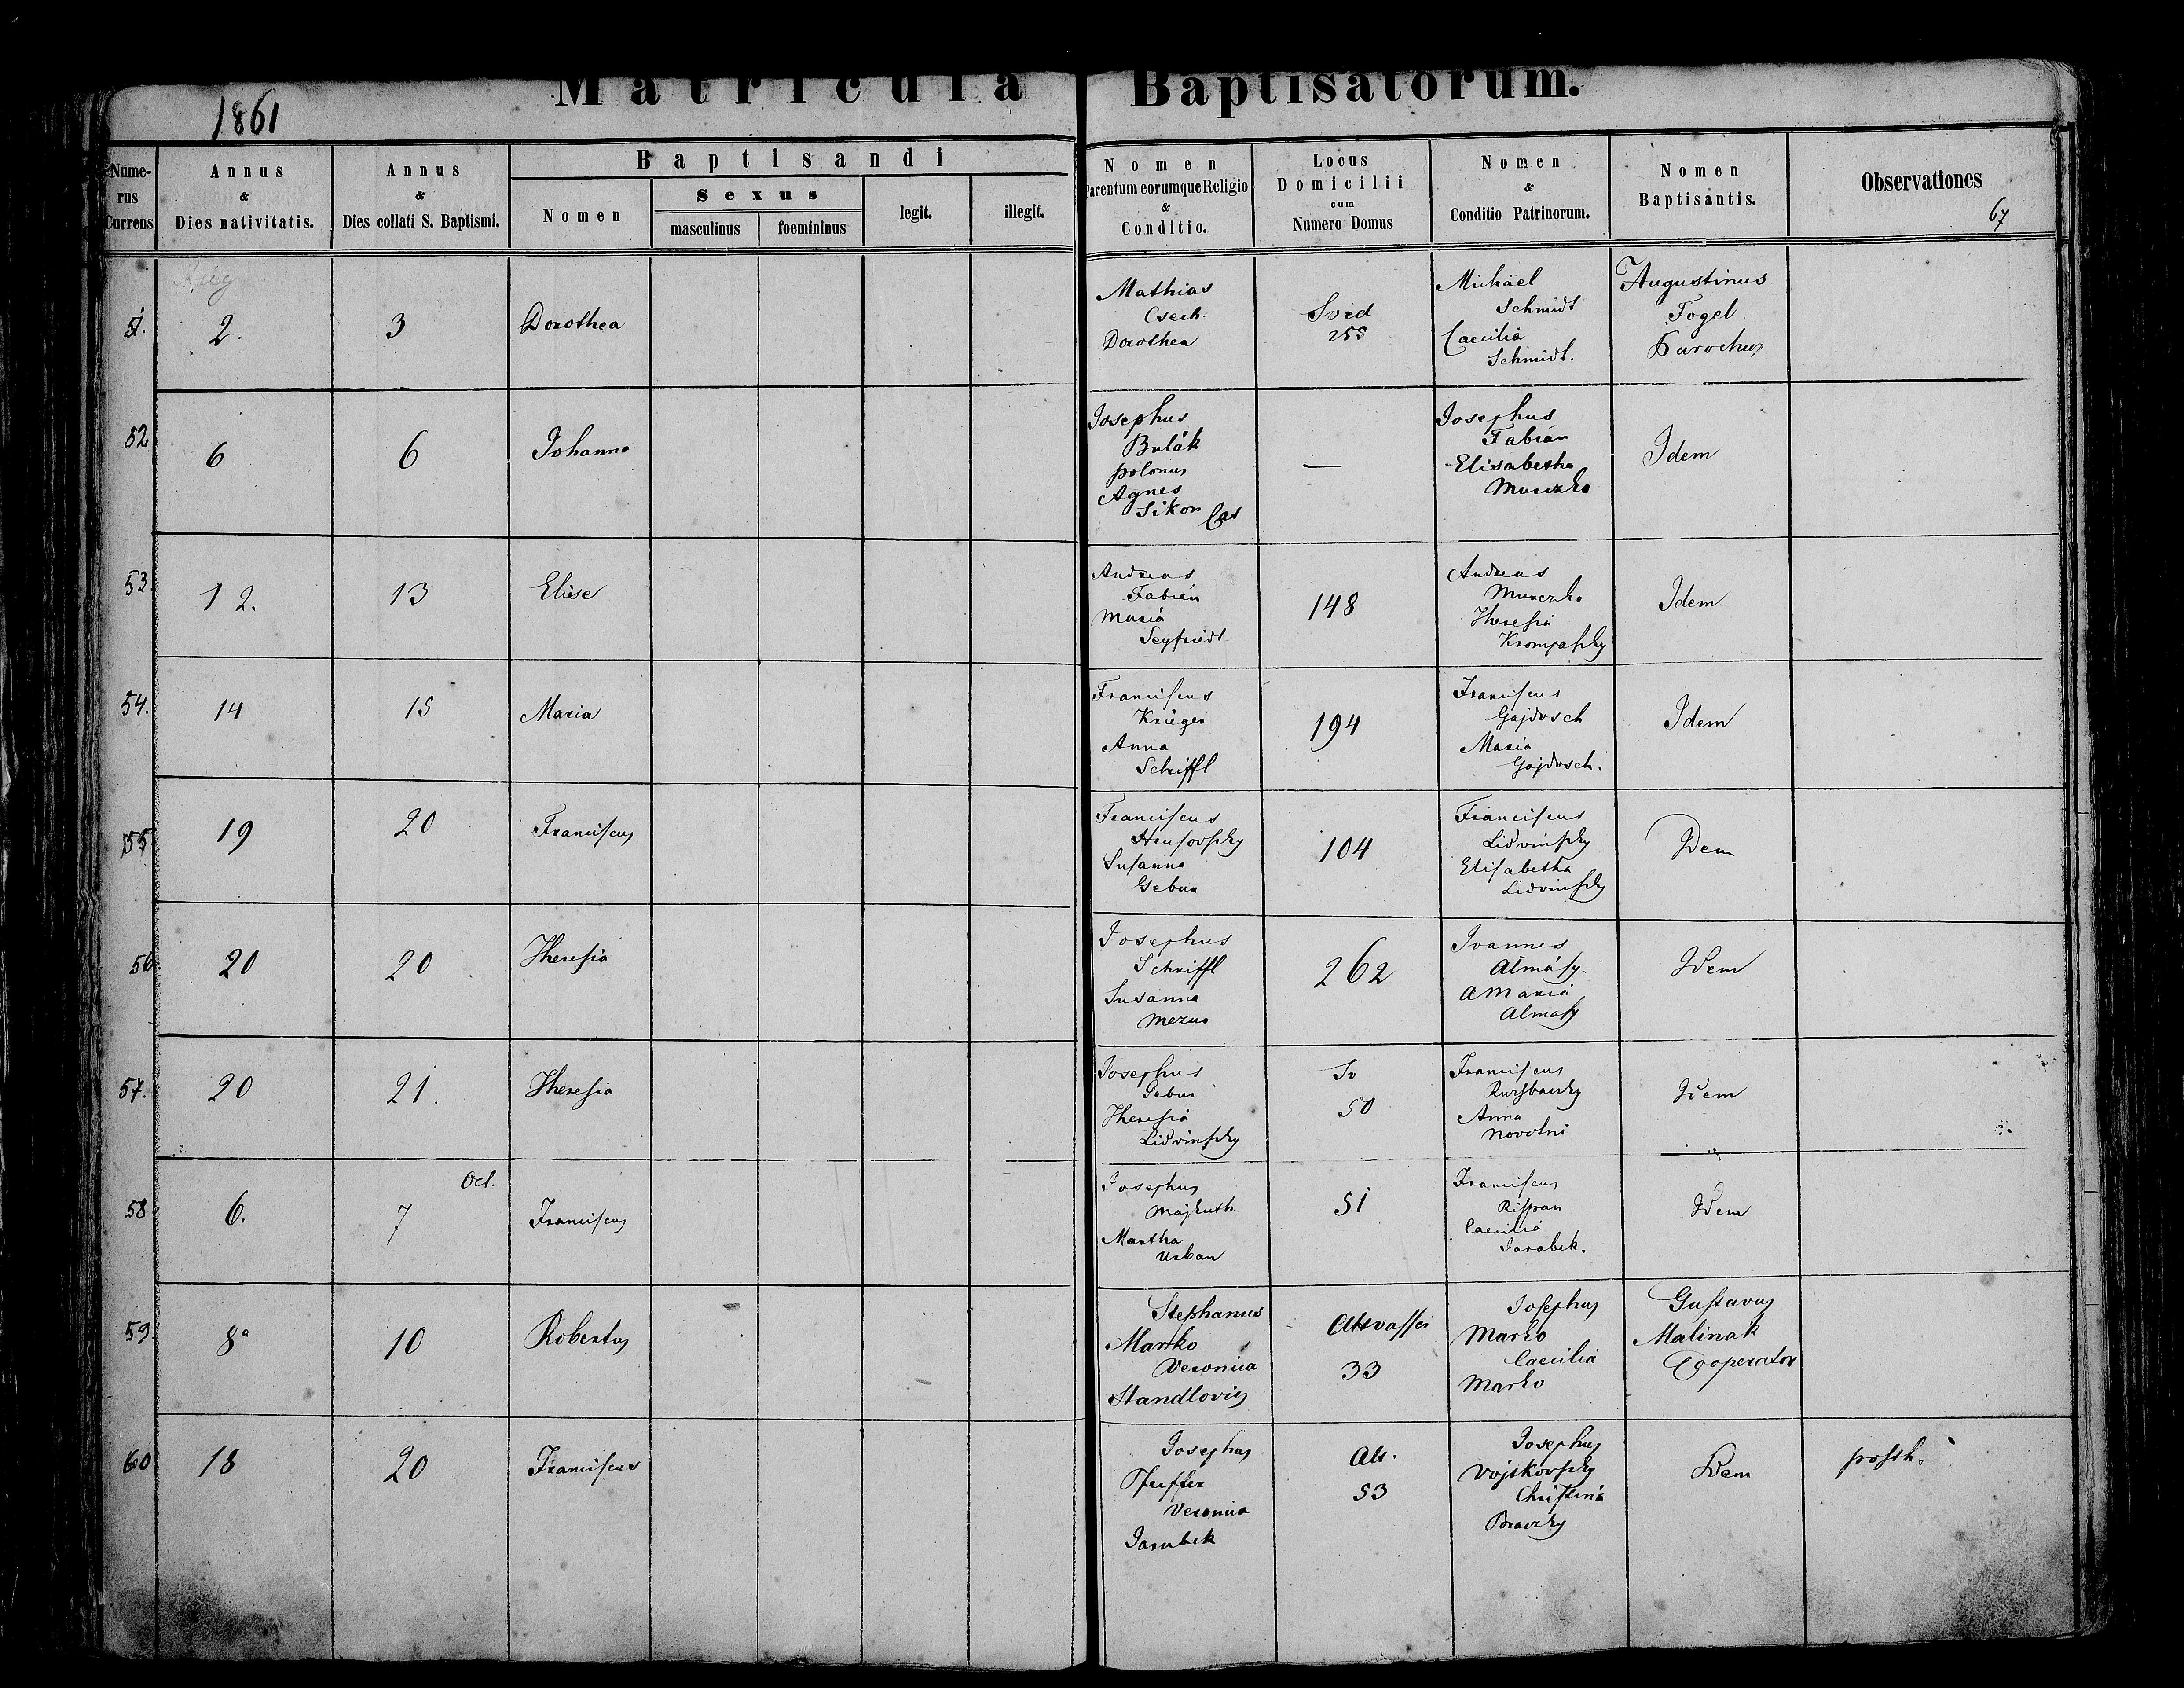 Matricula Baptisatorum.
1861
Numerus Currens
Annus & Dies nativitatis.
Annus & Dies collati S. Baptismi.
Baptisandi
Nomen
Sexus
masculinus
foemininus
legit.
illegit.
Nomen Parentum eorumque Religio & Conditio.
Locus Domicilii cum Numero Domus
Nomen & Conditio Patrinorum.
Nomen Baptisantis.
Observationes
67
Aug
51.
2.
3
Dorothea
Mathias
Csech
Dorothea
Sved
255
Michäel
Schmidt
Caecilia
Schmidt.
Augustinus
Fogel
Parochus
52
6
6
Johanna
Josephus
Bulák
polonus
Agnes
Sikor
—
Josephus
Fabián
Elisabetha
Murczko
Idem
53.
12.
13
Elise
Andreas
Fabián
Maria
Seyfriedt
148
Andreas
Murczko
Theresia
Krompaszky
Idem
54.
14
15
Maria
Franciscus
Krieger
Anna
Schiffl
194
Franciscus
Gajdosch
Maria
Gajdosch.
Idem
55
19
20
Franciscus
Franciscus
Susanna
Gebur
104
Franciscus
Lidvinszky
Elisabetha
Lidvinszky
Idem
56.
20
20
Theresia
Josephus
Schriffl
Susanna
Mezus
262
Joannes
Almásy
A Maria
Almásy
Idem
57.
20
21.
Theresia
Josephus
Gebur
Theresia
Lidvinszky
Sv
50
Franciscus
Anna
Novotni
Idem
58
6.
Oct.
7
Franciscus
Josephus
Majkuth
Martha
Urban
51
Franciscus
Rispan
Caecilia
Jarabek.
Idem
59
8ª
10
Robertus
Stephanus
Marko
Veronica
Standlovics
Altvasser
33
Josephus
Marko
Caecilia
Marko
Gustavus
Malinak
Cooperator
60
18
20
Franciscus
Josephus
Pfeiffer
Veronica
Jarabek
Alt.
53
Josephus
Vojtkovszky
Christina
Idem
posth.